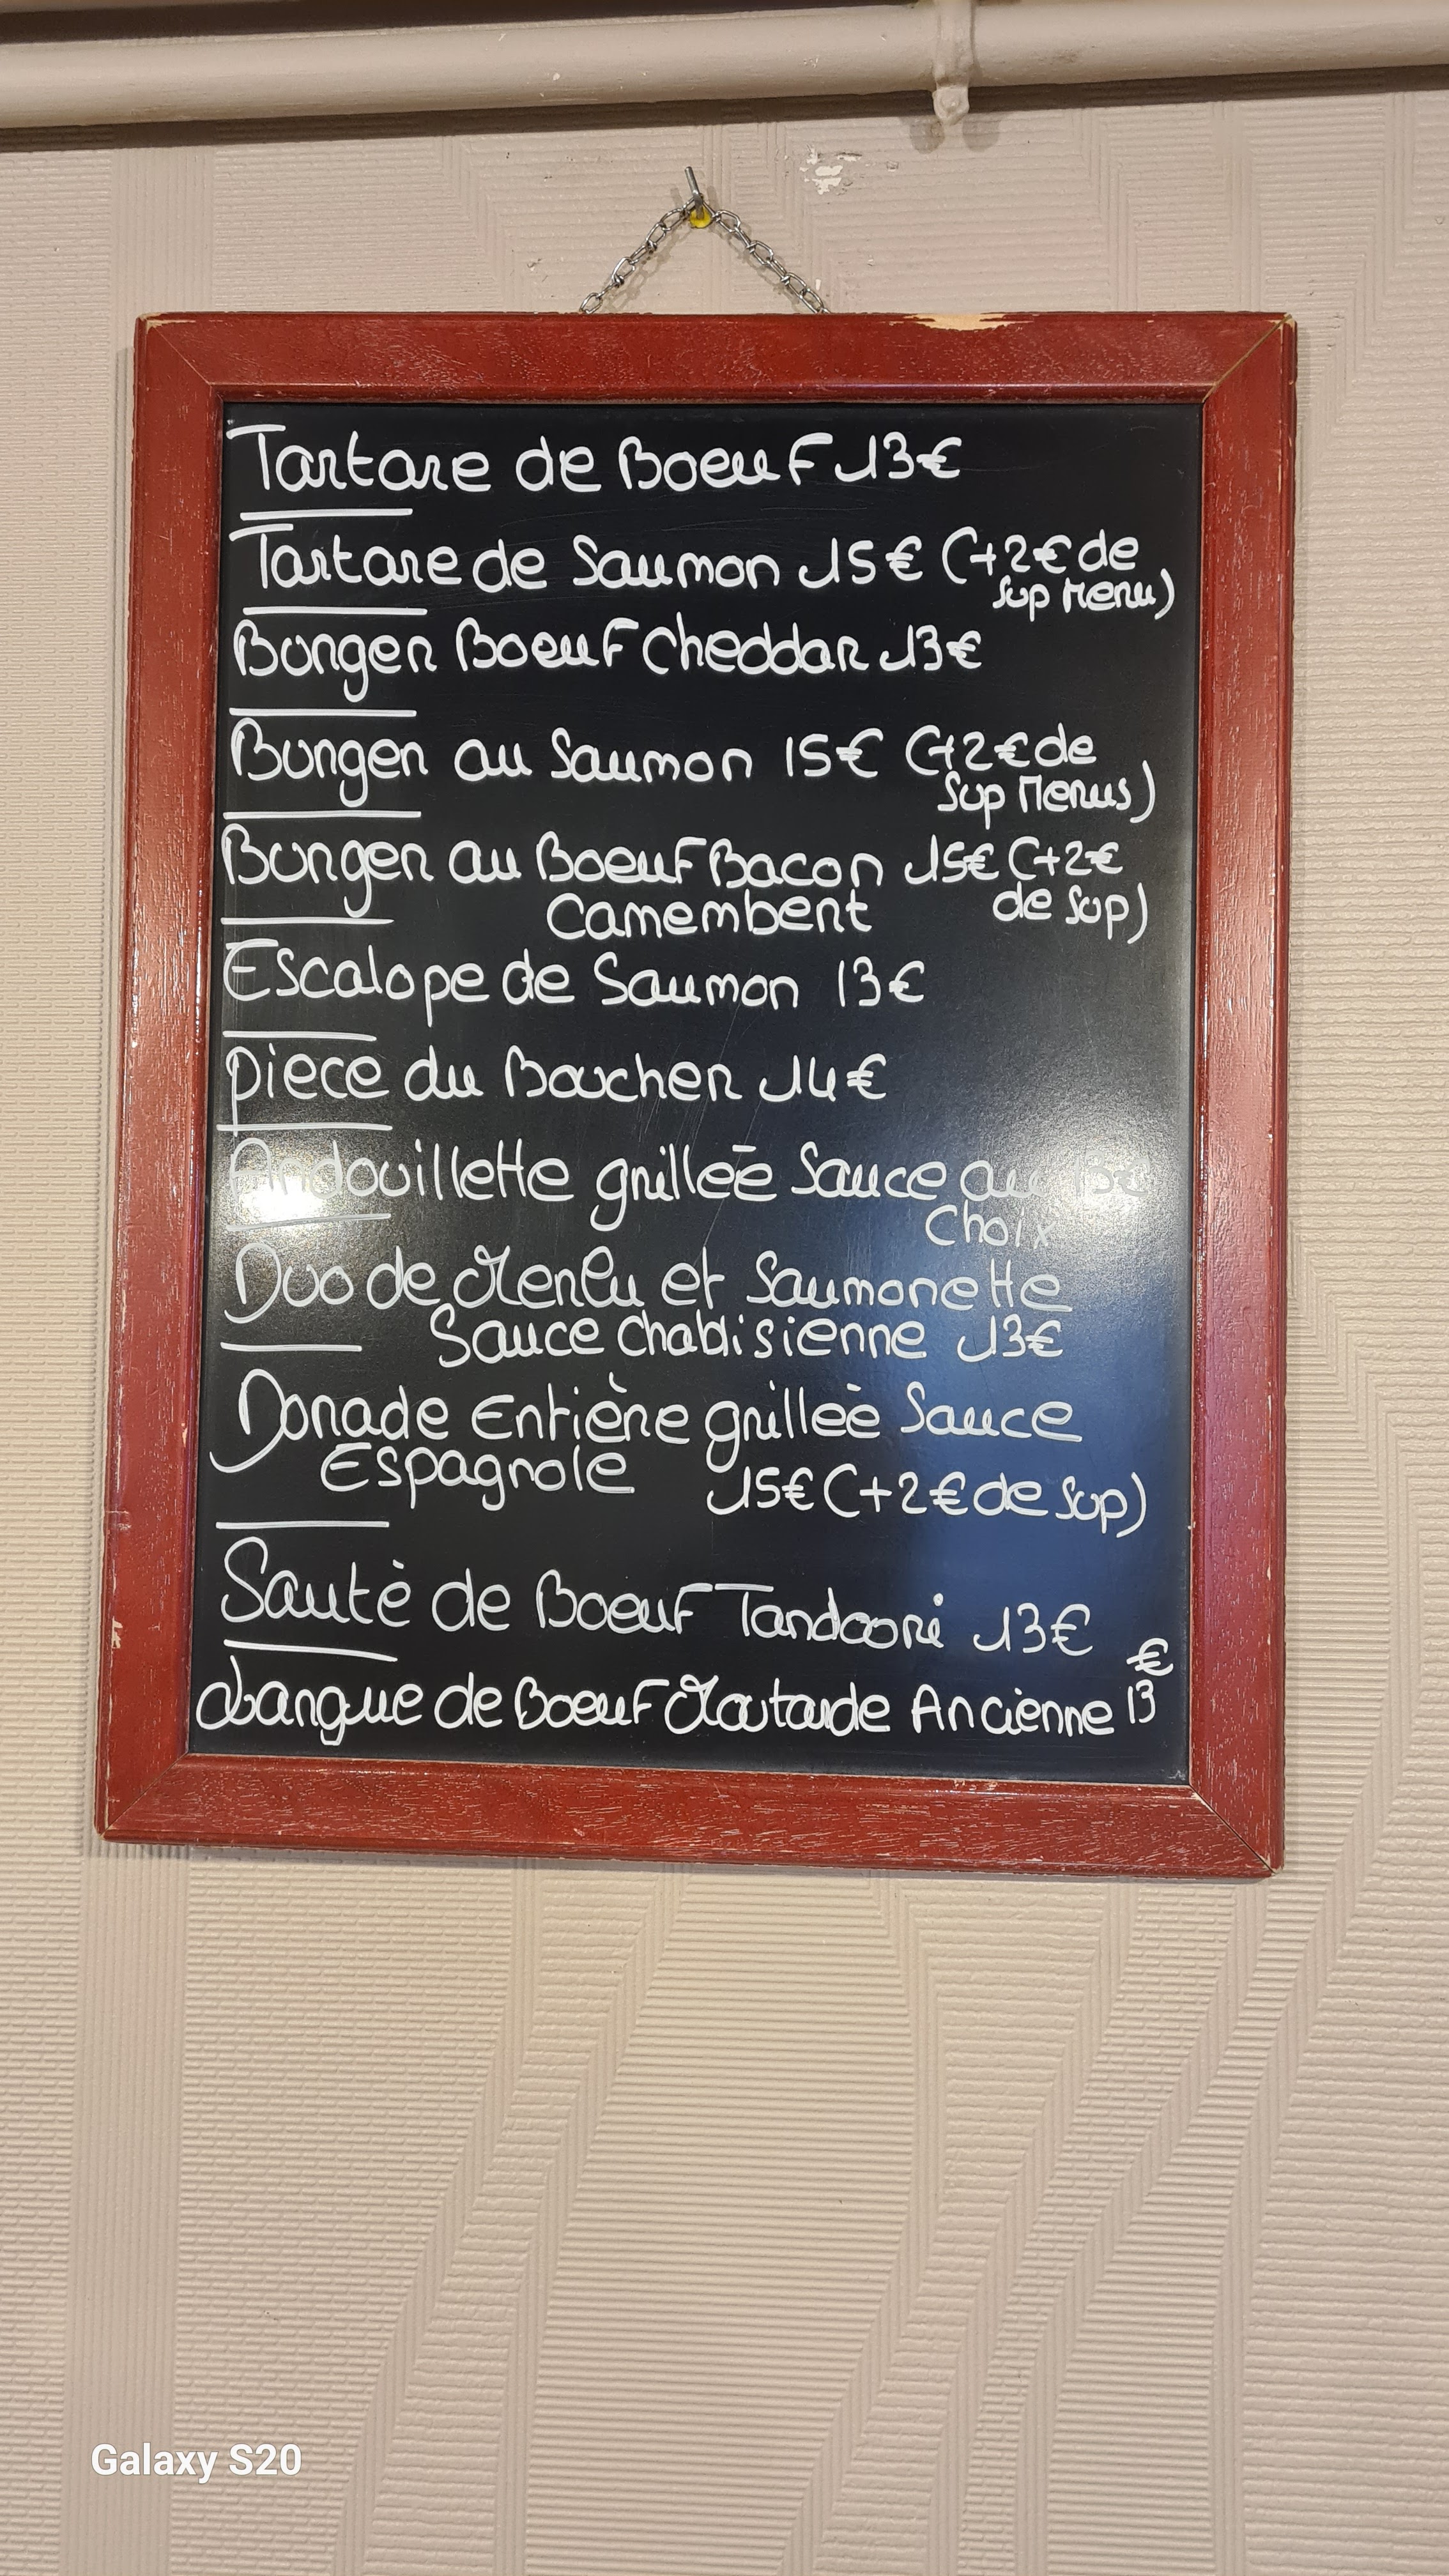 Tartare de Boeuf 13€
Tartare de Saumon 15€ (+2€ de
Sup Menu)
Burger Boeuf Cheddar 13€
Burger au Saumon 15€ (+2€ de
Sup Menus)
Burger au Boeuf Bacon 15€ (+2€
Camembert de Sup)
Escalope de Saumon 13€
piece du Boucher 14€
Andouillette grilleé Sauce au 13€
Choix
Duo de Merlu et Saumonette
Sauce chablisienne 13€
Dorade Entière grilleè Sauce
Espagnole 15€ (+2€ de Sup)
Sautè de Boeuf Tandoori 13€
Langue de Boeuf Moutarde Ancienne 13 €
Galaxy S20